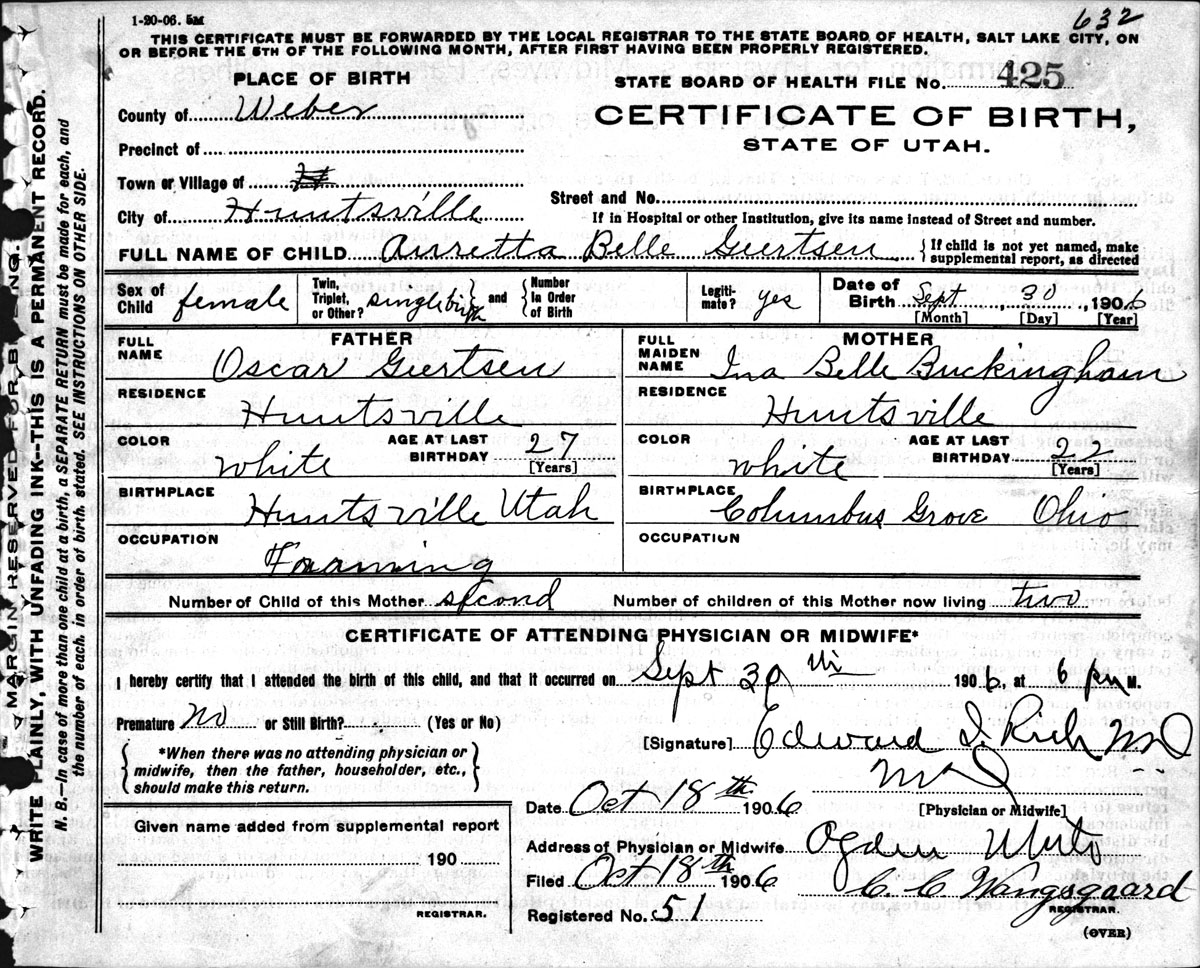 1-20-06. 5M
632
THIS CERTIFICATE MUST BE FORWARDED BY THE LOCAL REGISTRAR TO THE STATE BOARD OF HEALTH, SALT LAKE CITY, ON
OR BEFORE THE 5TH OF THE FOLLOWING MONTH, AFTER FIRST HAVING BEEN PROPERLY REGISTERED.
PLACE OF BIRTH
STATE BOARD OF HEALTH FILE No. 425
County of Weber
CERTIFICATE OF BIRTH,
STATE OF UTAH.
Precinct of
Town or Village of
Street and No.
City of Huntsville
If in Hospital or other Institution, give its name instead of Street and number.
FULL NAME OF CHILD Arretta Belle Geertsen { If child is not yet named, make supplemental report, as directed
Sex of Child female
Twin, Triplet, or Other? single birth } and { Number in Order of Birth
Legiti- mate? yes
Date of Birth Sept, 30, 1906
[Month] [Day] [Year]
FATHER
MOTHER
FULL NAME Oscar Geertsen
FULL MAIDEN NAME Ina Belle Buckingham
RESIDENCE Huntsville
RESIDENCE Huntsville
COLOR white
AGE AT LAST BIRTHDAY 27 [Years]
COLOR white
AGE AT LAST BIRTHDAY 22 [Years]
BIRTHPLACE Huntsville Utah
BIRTHPLACE Columbus Grove Ohio
OCCUPATION Framing
OCCUPATION
Number of Child of this Mother second Number of children of this Mother now living two
CERTIFICATE OF ATTENDING PHYSICIAN OR MIDWIFE*
I hereby certify that I attended the birth of this child, and that it occurred on Sept 30th 1906, at 6 pm M.
Premature No or Still Birth? (Yes or No)
[Signature] Edward I. Rich MD
{ *When there was no attending physician or
midwife, then the father, householder, etc.,
should make this return. }
MD
[Physician or Midwife]
Date Oct 18th 1906
Given name added from supplemental report
Address of Physician or Midwife Ogden Utah
190
Filed Oct 18th 1906
C C Wangsgaard
REGISTRAR.
REGISTRAR.
Registered No. 51
(OVER)
MARGIN RESERVED FOR BINDING.
WRITE PLAINLY, WITH UNFADING INK—THIS IS A PERMANENT RECORD.
N. B.—In case of more than one child at a birth, a SEPARATE RETURN must be made for each, and
the number of each, in order of birth, stated. SEE INSTRUCTIONS ON OTHER SIDE.